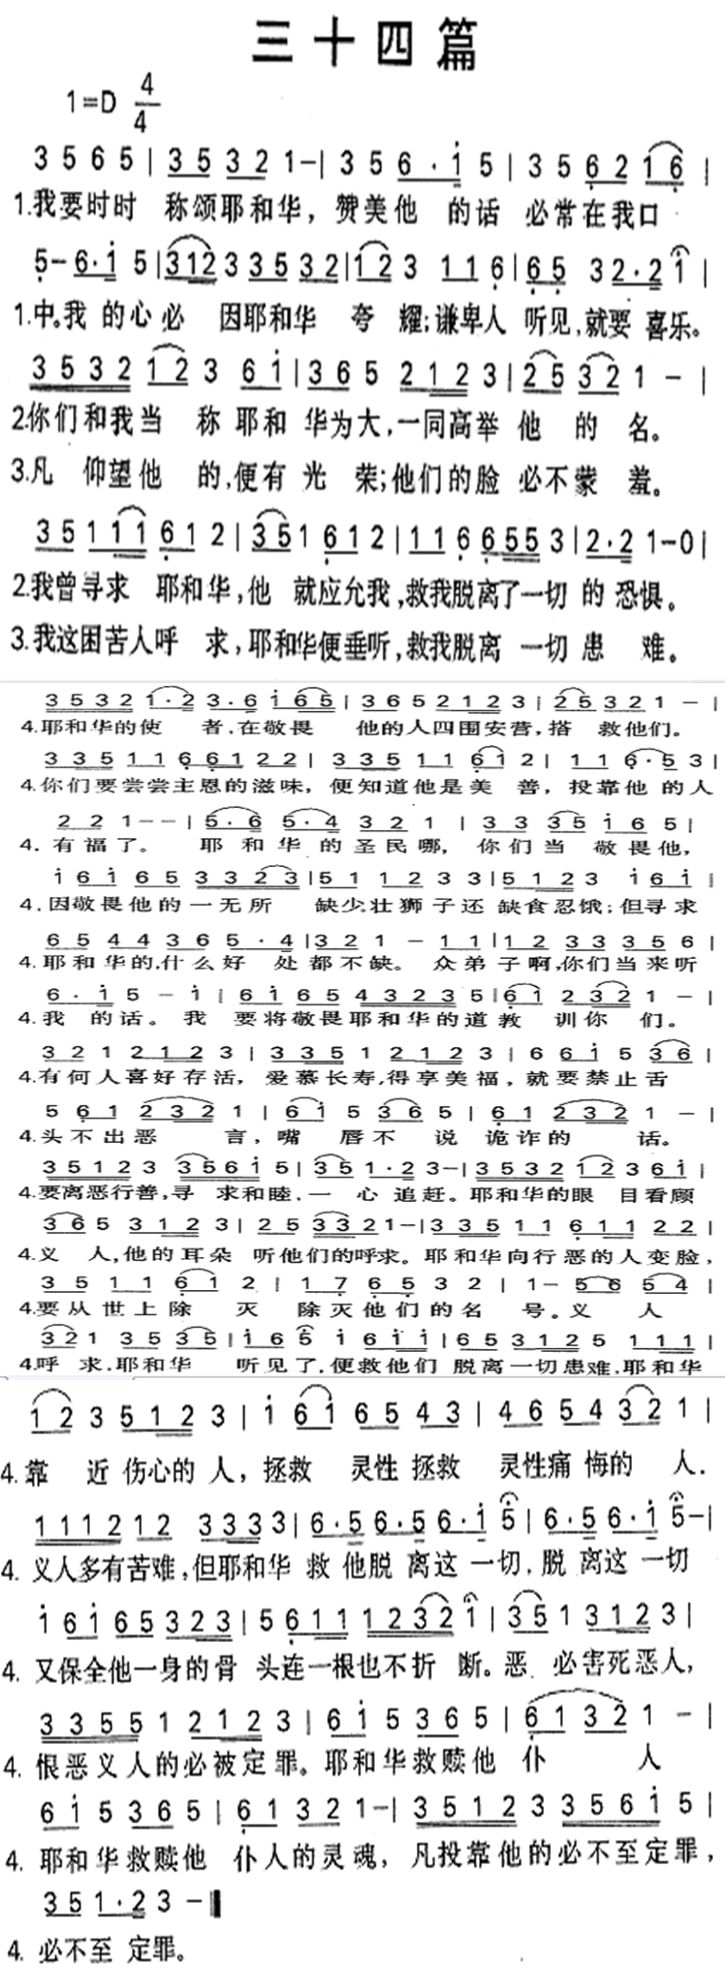 三十四篇
1=D 4/4
3 5 6 5 | 3 5 3 2 1 – | 3 5 6 · i 5 | 3 5 6 2 1 6 |
1.我要时时 称颂耶和华，赞美他 的话 必常在我口
5 – 6 · i 5 | 3 1 2 3 3 5 3 2 | 1 2 3 1 1 6 | 6 5 3 2 · 2 i |
1.中。我 的心必 因耶和华 夸 耀；谦卑人 听见，就要 喜乐。
3 5 3 2 1 2 3 6 i | 3 6 5 2 1 2 3 | 2 5 3 2 1 – |
2.你们和我当 称 耶和 华为大，一同高举 他 的 名。
3.凡 仰望他 的，便有 光 荣；他们的脸 必不蒙 羞。
3 5 1 1 1 6 1 2 | 3 5 1 6 1 2 | 1 1 6 6 5 5 3 | 2 · 2 1 – 0 |
2.我曾寻求 耶和华，他 就应允我，救我脱离了一切 的 恐惧。
3.我这困苦人呼 求，耶和华便垂听，救我脱离 一切 患 难。
3 5 3 2 1 · 2 3 · 6 i 6 5 | 3 6 5 2 1 2 3 | 2 5 3 2 1 – |
4.耶和华的使 者，在敬畏 他的人四围安营，搭 救他们。
3 3 5 1 1 6 6 1 2 2 | 3 3 5 1 1 6 1 2 | 1 1 6 · 5 3 |
4.你们要尝尝主恩的滋味，便知道他是美 善，投靠他 的人
2 2 1 – – | 5 · 6 5 · 4 3 2 1 | 3 3 3 5 i 6 5 |
4.有福了。 耶 和 华 的圣民哪，你们当 敬畏他，
i 6 i 6 5 3 3 2 3 | 5 1 1 2 3 3 | 5 1 2 3 i 6 i |
4.因敬畏他的一无所 缺少壮狮子还 缺食忍饿；但寻求
6 5 4 4 3 6 5 · 4 | 3 2 1 – 1 1 | 1 2 3 3 3 5 6 |
4.耶和华的，什么好 处都不缺。 众弟子啊，你们当来听
6 · i 5 – i | 6 i 6 5 4 3 2 3 5 | 6 1 2 3 2 1 – |
4.我 的话。 我 要将敬畏耶和华的道教 训你 们。
3 2 1 2 1 2 3 | 3 3 5 1 2 1 2 3 | 6 6 i 5 3 6 |
4.有何人喜好存活，爱慕长寿，得享美福，就要禁止舌
5 6 1 2 3 2 1 | 6 i 5 3 6 5 | 6 1 2 3 2 1 – |
4.头不出恶 言，嘴 唇不 说 诡诈的 话。
3 5 1 2 3 3 5 6 i 5 | 3 5 1 · 2 3 – | 3 5 3 2 1 2 3 6 i |
4.要离恶行善，寻 求和睦，一 心 追赶。耶和华的眼 目看顾
3 6 5 3 1 2 3 | 2 5 3 3 2 1 – | 3 3 5 1 1 6 1 1 2 2 |
4.义 人，他的耳朵 听他们的呼求。耶和华向行恶的人变脸，
3 5 1 1 6 1 2 | 1 7 6 5 3 2 | 1 – 5 6 5 4 |
4.要从世上除 灭 除灭他们的名 号。义 人
3 2 1 3 5 3 5 | i 6 5 i 6 i i | 6 5 3 1 2 5 1 1 1 |
4.呼 求，耶和华 听见了，便救他们 脱离一切患难，耶和华
1 2 3 5 1 2 3 | i 6 i 6 5 4 3 | 4 6 5 4 3 2 1 |
4.靠 近伤心的人，拯救 灵性拯救 灵性痛悔的 人.
1 1 1 2 1 2 3 3 3 3 | 6 · 5 6 · 5 6 · i 5 | 6 · 5 6 · i 5 – |
4. 义人多有苦难，但耶和华 救 他脱 离这 一切，脱 离这 一切
i 6 i 6 5 3 2 3 | 5 6 1 1 1 2 3 2 i | 3 5 1 3 1 2 3 |
4. 又保全他一身的骨 头连一根也不折 断。恶 必害死恶人，
3 3 5 5 1 2 1 2 3 | 6 i 5 3 6 5 | 6 1 3 2 1 – |
4. 恨恶义人的必被定罪。耶和华救赎他 仆 人
6 i 5 3 6 5 | 6 1 3 2 1 – | 3 5 1 2 3 3 5 6 i 5 |
4. 耶和华救赎他 仆人的灵魂，凡投靠他的必不至定罪，
3 5 1 · 2 3 – ‖
4. 必不至 定罪。